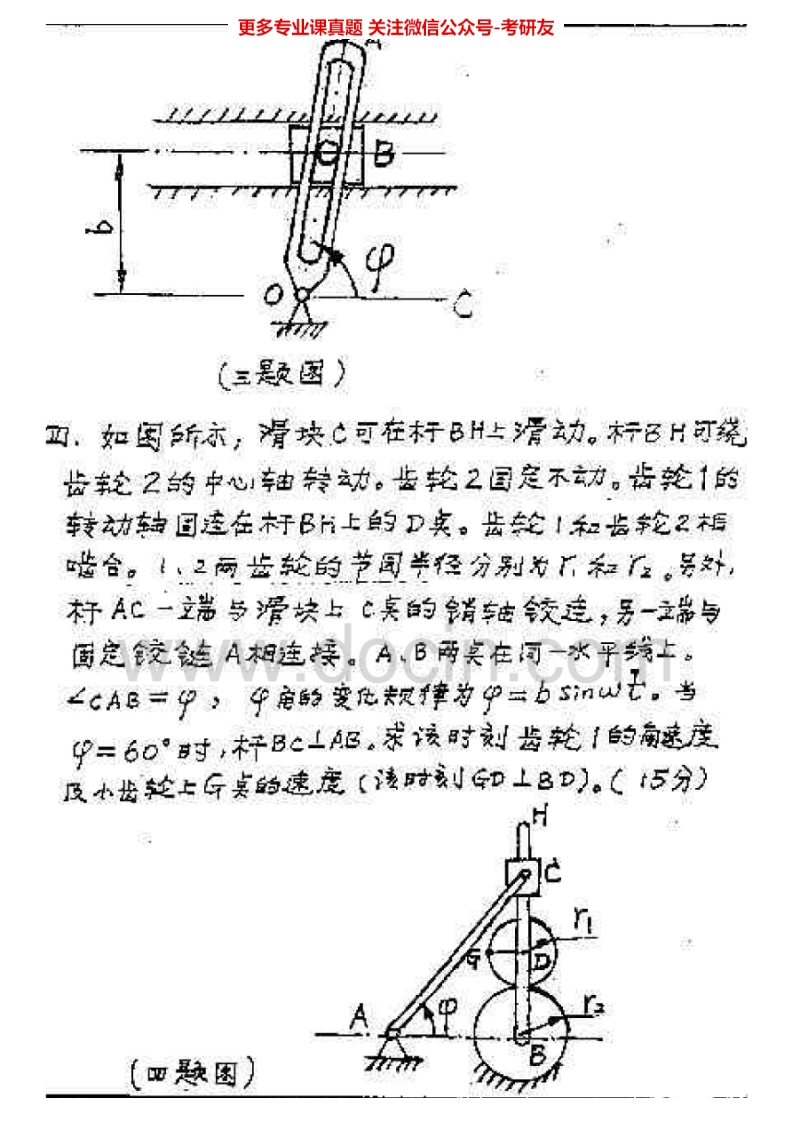 更多专业课真题 关注微信公众号-考研友
A
B
b
φ
O
C
(三题图)
四、如图所示，滑块C可在杆BH上滑动。杆BH可绕
齿轮2的中心轴转动。齿轮2固定不动。齿轮1的
转动轴固连在杆BH上的D点。齿轮1和齿轮2相
啮合。1、2两齿轮的节圆半径分别为r₁和r₂。另外，
杆AC一端与滑块上C点的销轴铰连，另一端与
固定铰链A相连接。A、B两点在同一水平线上。
∠CAB=φ，φ角的变化规律为φ=bsinωt。当
φ=60°时，杆BC⊥AB。求该时刻齿轮1的角速度
及小齿轮上G点的速度(该时刻GD⊥BD)。(15分)
www.docin.com
H
C
r₁
G
D
r₂
A
φ
B
(四题图)